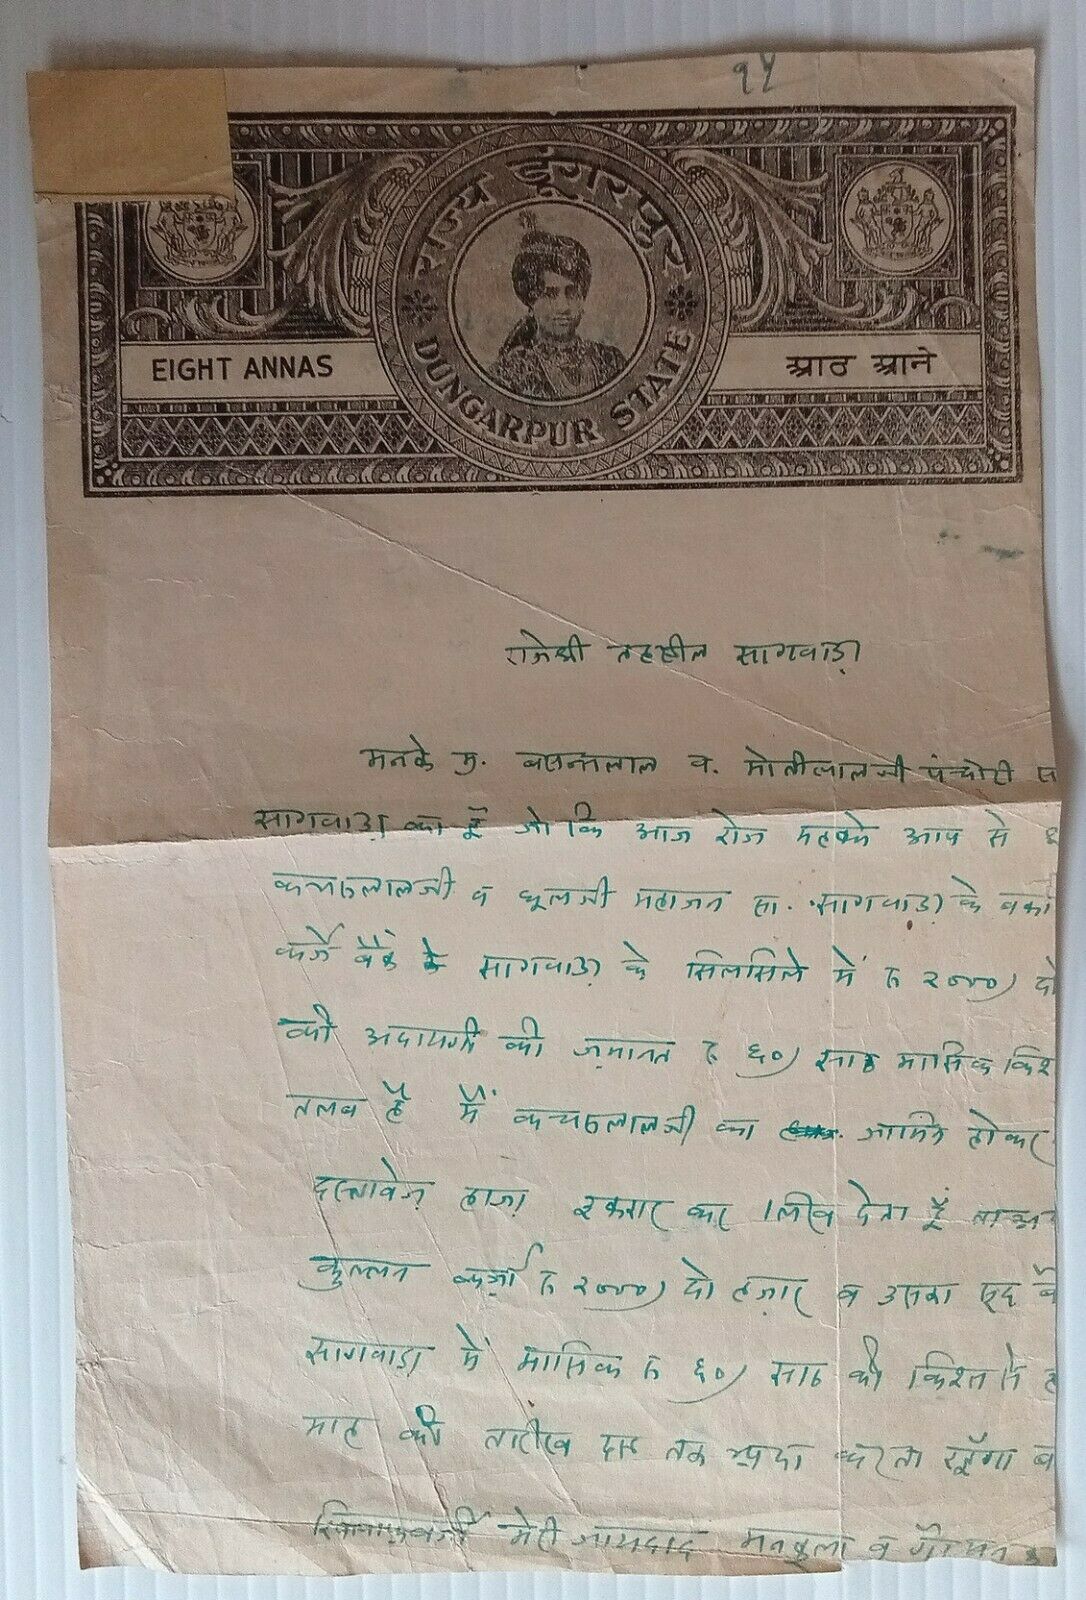 १५
राज्य डूंगरपुर
DUNGARPUR STATE
EIGHT ANNAS
आठ आने
राजेश्री तहसील सागवाड़ा
मनके मु. बसन्तलाल व. मोतीलालजी पंचोरी
सागवाड़ा का हूँ जो कि आज रोज महक्मे आप से
कचरूलालजी व धूलजी महाजन सा. सागवाड़ा के
कर्जे बैंक सागवाड़ा के सिलसिले में रु २०००) दो
की अदायगी की ज़मानत रु ६०) साठ मासिक
तलब है मैं कचरूलालजी का जामिन होकर
दस्तावेज़ हाज़ा इकरार कर लिख देता हूँ
कुल्लन कर्ज़ा रु २०००) दो हज़ार व उसका सूद
सागवाड़ा में मासिक रु ६०) साठ की किश्त से
माह की तारीख दस तक अदा करता रहूँगा
मेरी जायदाद मनकूला व गैर